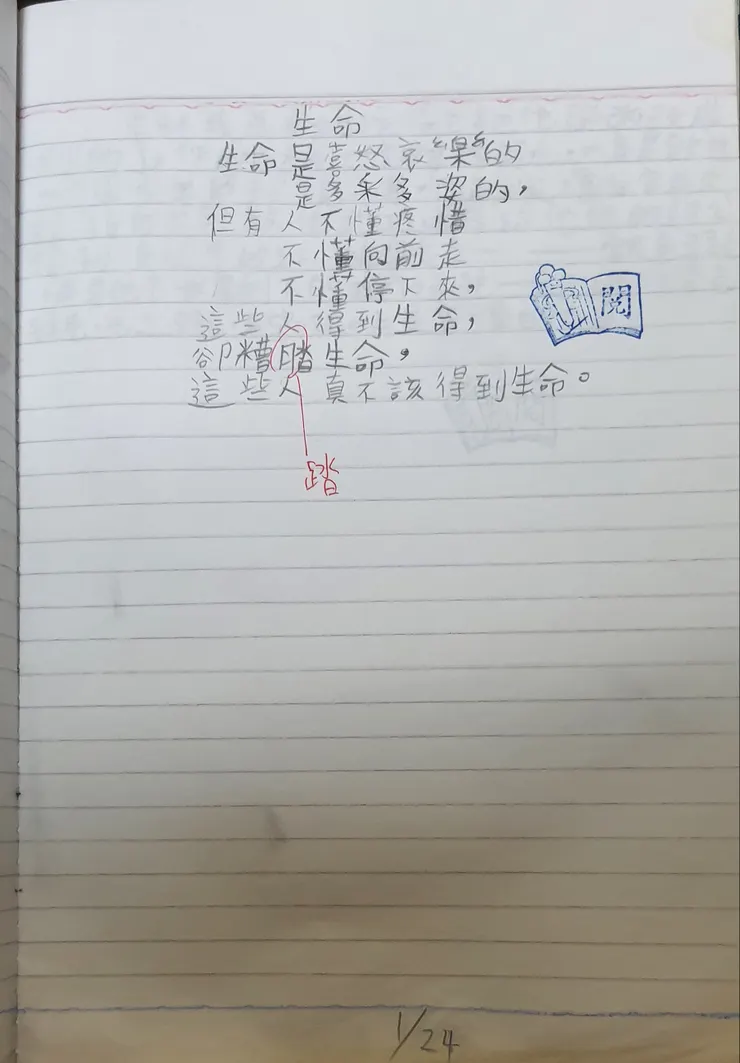 生命
生命是喜怒哀樂的
是多采多姿的，
但有人不懂疼惜
不懂向前走
不懂停下來，
這些人得到生命，
卻糟踏生命，
這些人真不該得到生命。
閱
踏
1/24